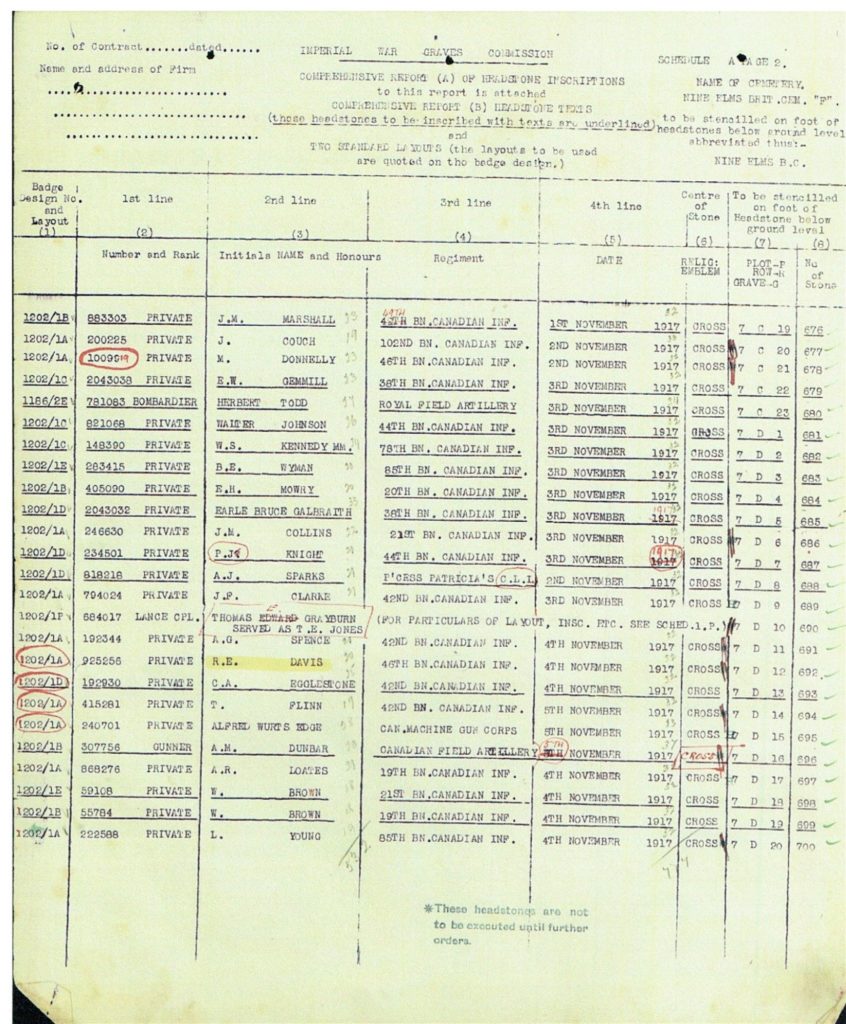 No. of Contract.......dated......
IMPERIAL WAR GRAVES COMMISSION
SCHEDULE A PAGE 2.
Name and address of Firm
COMPREHENSIVE REPORT (A) OF HEADSTONE INSCRIPTIONS
NAME OF CEMETERY.
to this report is attached
NINE ELMS BRIT.CEM. "F".
COMPREHENSIVE REPORT (B) HEADSTONE TEXTS
(those headstones to be inscribed with texts are underlined)
to be stencilled on foot of
headstones below ground level
and
abbreviated thus:-
TWO STANDARD LAYOUTS (the layouts to be used
are quoted on the badge design.)
NINE ELMS B.C.
Badge Design No. and Layout (1) 1st line (2) 2nd line (3) 3rd line (4) 4th line (5) Centre of Stone (6) To be stencilled on foot of Headstone below ground level (7) (8)
Number and Rank Initials NAME and Honours Regiment DATE RELIG: EMBLEM PLOT-P ROW-R GRAVE-G No of Stone
1202/1B 883303 PRIVATE J.M. MARSHALL 49TH BN.CANADIAN INF. 1ST NOVEMBER 1917 CROSS 7 C 19 676
1202/1A 200225 PRIVATE J. COUCH 102ND BN. CANADIAN INF. 2ND NOVEMBER 1917 CROSS 7 C 20 677
1202/1A 1009919 PRIVATE M. DONNELLY 46TH BN.CANADIAN INF. 2ND NOVEMBER 1917 CROSS 7 C 21 678
1202/1C 2043038 PRIVATE E.W. GEMMILL 38TH BN.CANADIAN INF. 3RD NOVEMBER 1917 CROSS 7 C 22 679
1186/2E 781083 BOMBARDIER HERBERT TODD ROYAL FIELD ARTILLERY 3RD NOVEMBER 1917 CROSS 7 C 23 680
1202/1C 821068 PRIVATE WALTER JOHNSON 44TH BN.CANADIAN INF. 3RD NOVEMBER 1917 CROSS 7 D 1 681
1202/1C 148390 PRIVATE W.S. KENNEDY MM. 78TH BN. CANADIAN INF. 3RD NOVEMBER 1917 CROSS 7 D 2 682
1202/1E 283415 PRIVATE B.E. WYMAN 85TH BN. CANADIAN INF. 3RD NOVEMBER 1917 CROSS 7 D 3 683
1202/1B 405090 PRIVATE E.H. MOWRY 20TH BN. CANADIAN INF. 3RD NOVEMBER 1917 CROSS 7 D 4 684
1202/1D 2043032 PRIVATE EARLE BRUCE GALBRAITH 38TH BN. CANADIAN INF. 3RD NOVEMBER 1917 CROSS 7 D 5 685
1202/1A 246630 PRIVATE J.M. COLLINS 21ST BN. CANADIAN INF. 3RD NOVEMBER 1917 CROSS 7 D 6 686
1202/1D 234501 PRIVATE P.J. KNIGHT 44TH BN. CANADIAN INF. 3RD NOVEMBER 1917 CROSS 7 D 7 687
1202/1D 818218 PRIVATE A.J. SPARKS P'CESS PATRICIA'S C.L.I. 2ND NOVEMBER 1917 CROSS 7 D 8 688
1202/1A 794024 PRIVATE J.F. CLARKE 42ND BN.CANADIAN INF. 3RD NOVEMBER 1917 CROSS 7 D 9 689
1202/1F 684017 LANCE CPL. THOMAS EDWARD GRAYBURN (FOR PARTICULARS OF LAYOUT, INSC. ETC. SEE SCHED.1.P.) 7 D 10 690
SERVED AS T.E. JONES
1202/1A 192344 PRIVATE A.G. SPENCE 42ND BN.CANADIAN INF. 4TH NOVEMBER 1917 CROSS 7 D 11 691
1202/1A 925256 PRIVATE R.E. DAVIS 46TH BN.CANADIAN INF. 4TH NOVEMBER 1917 CROSS 7 D 12 692
1202/1D 192930 PRIVATE C.A. EGGLESTONE 42ND BN.CANADIAN INF. 4TH NOVEMBER 1917 CROSS 7 D 13 693
1202/1A 415281 PRIVATE T. FLINN 42ND BN. CANADIAN INF. 5TH NOVEMBER 1917 CROSS 7 D 14 694
1202/1A 240701 PRIVATE ALFRED WURTS EDGE CAN.MACHINE GUN CORPS 5TH NOVEMBER 1917 CROSS 7 D 15 695
1202/1B 307756 GUNNER A.M. DUNBAR CANADIAN FIELD ARTILLERY 5TH NOVEMBER 1917 CROSS 7 D 16 696
1202/1A 868276 PRIVATE A.R. LOATES 19TH BN.CANADIAN INF. 4TH NOVEMBER 1917 CROSS 7 D 17 697
1202/1E 59108 PRIVATE W. BROWN 21ST BN.CANADIAN INF. 4TH NOVEMBER 1917 CROSS 7 D 18 698
1202/1B 55784 PRIVATE W. BROWN 19TH BN.CANADIAN INF. 4TH NOVEMBER 1917 CROSS 7 D 19 699
1202/1A 222588 PRIVATE L. YOUNG 85TH BN.CANADIAN INF. 4TH NOVEMBER 1917 CROSS 7 D 20 700
*These headstones are not
to be executed until further
orders.